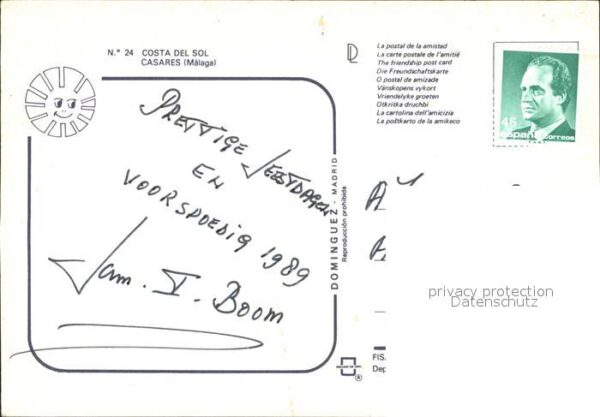 N.° 24 COSTA DEL SOL
CASARES (Málaga)
La postal de la amistad
La carte postale de l'amitié
The friendship post card
Die Freundschaftskarte
O postal de amizade
Vänskopens vykort
Vriendelyke groeten
Otkritka druchbi
La cartolina dell'amicizia
La poŝtkarto de la amikeco
45
España correos
PRETTIGE FEESTDAGEN
EN
VOORSPOEDIG 1989
Fam. V. BOOM
DOMINGUEZ - MADRID
Reproducción prohibida
privacy protection
Datenschutz
FIS
Dep
®